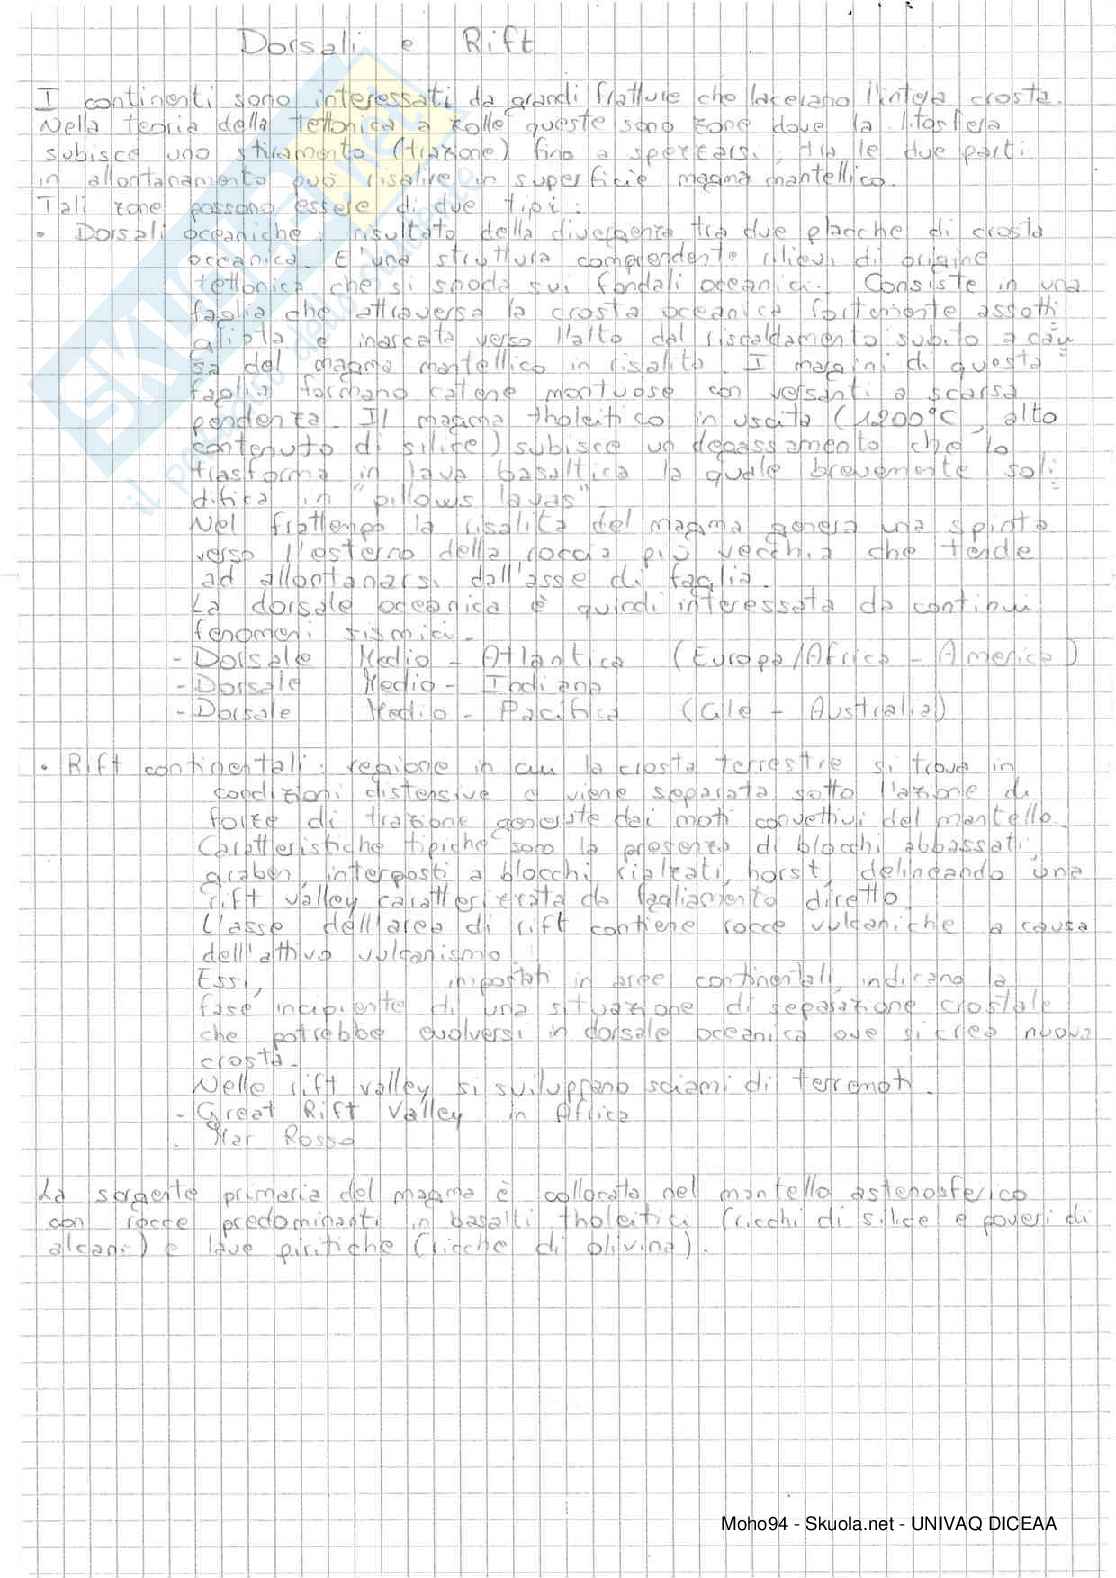 Dorsali e Rift
I continenti sono interessati da grandi fratture che lacerano l'intera crosta.
Nella teoria della tettonica a zolle queste sono zone dove la litosfera
subisce uno stiramento (trazione) fino a spezzarsi, tra le due parti
in allontanamento può risalire in superficie magma mantellico.
Tali zone possono essere di due tipi:
• Dorsali oceaniche: risultato della divergenza tra due placche di crosta
oceanica. E' una struttura comprendente rilievi di origine
tettonica che si snoda sui fondali oceanici. Consiste in una
faglia che attraversa la crosta oceanica fortemente assotti
gliata e inarcata verso l'alto dal riscaldamento subito a cau
sa del magma mantellico in risalita. I margini di questa
faglia formano catene montuose con versanti a scarsa
pendenza. Il magma tholeitico in uscita (1200°C, alto
contenuto di silice) subisce un degassamento che lo
trasforma in lava basaltica la quale brevemente soli
difica in "pillows lavas".
Nel frattempo la risalita del magma genera una spinta
verso l'esterno della roccia più vecchia che tende
ad allontanarsi dall'asse di faglia.
La dorsale oceanica è quindi interessata da continui
fenomeni sismici.
- Dorsale Medio - Atlantica (Europa/Africa - America)
- Dorsale Medio - Indiana
- Dorsale Medio - Pacifica (Cile - Australia)
• Rift continentali: regione in cui la crosta terrestre si trova in
condizioni distensive o viene separata sotto l'azione di
forze di trazione generate dai moti convettivi del mantello.
Caratteristiche tipiche sono la presenza di blocchi abbassati,
graben, interposti a blocchi rialzati, horst, delineando una
rift valley caratterizzata da fagliamento diretto.
L'asse dell'area di rift contiene rocce vulcaniche a causa
dell'attivo vulcanismo.
Essi, impostati in aree continentali, indicano la
fase incipiente di una situazione di separazione crostale
che potrebbe evolversi in dorsale oceanica ove si crea nuova
crosta.
Nelle rift valley si sviluppano sciami di terremoti.
- Great Rift Valley in Africa
- Mar Rosso
La sorgente primaria del magma è collocata nel mantello astenosferico
con rocce predominanti in basalti tholeitici (ricchi di silice e poveri di
alcani) e lave picritiche (ricche di olivina).
SKUOLA.net
Moho94 - Skuola.net - UNIVAQ DICEAA